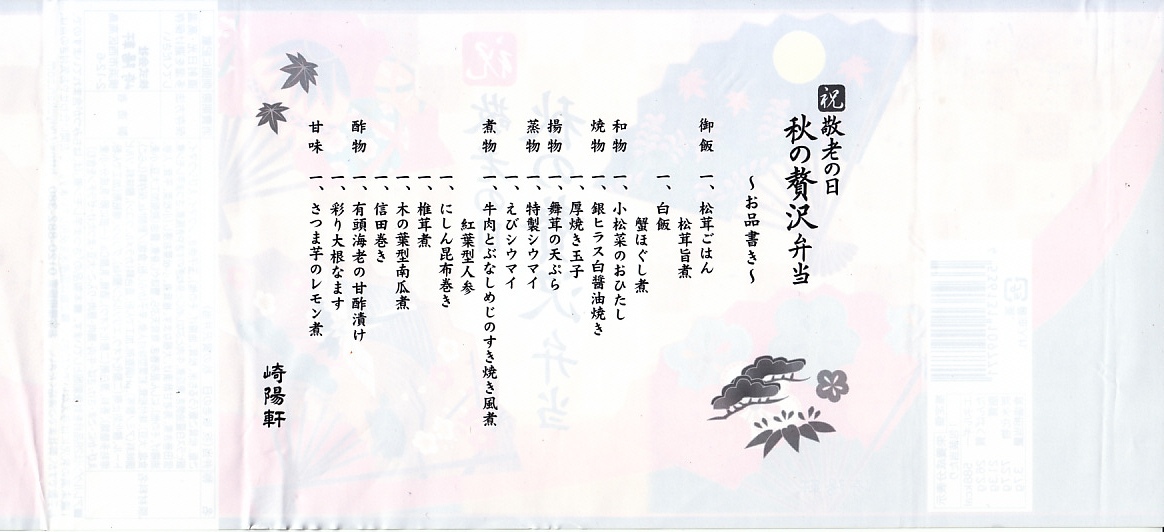 祝 敬老の日
秋の贅沢弁当
～お品書き～
御飯 一、松茸ごはん
松茸旨煮
一、白飯
蟹ほぐし煮
和物 一、小松菜のおひたし
焼物 一、銀ヒラス白醤油焼き
一、厚焼き玉子
揚物 一、舞茸の天ぷら
蒸物 一、特製シウマイ
一、えびシウマイ
煮物 一、牛肉とぶなしめじのすき焼き風煮
紅葉型人参
一、にしん昆布巻き
一、椎茸煮
一、木の葉型南瓜煮
一、信田巻き
酢物 一、有頭海老の甘酢漬け
一、彩り大根なます
甘味 一、さつま芋のレモン煮
崎陽軒